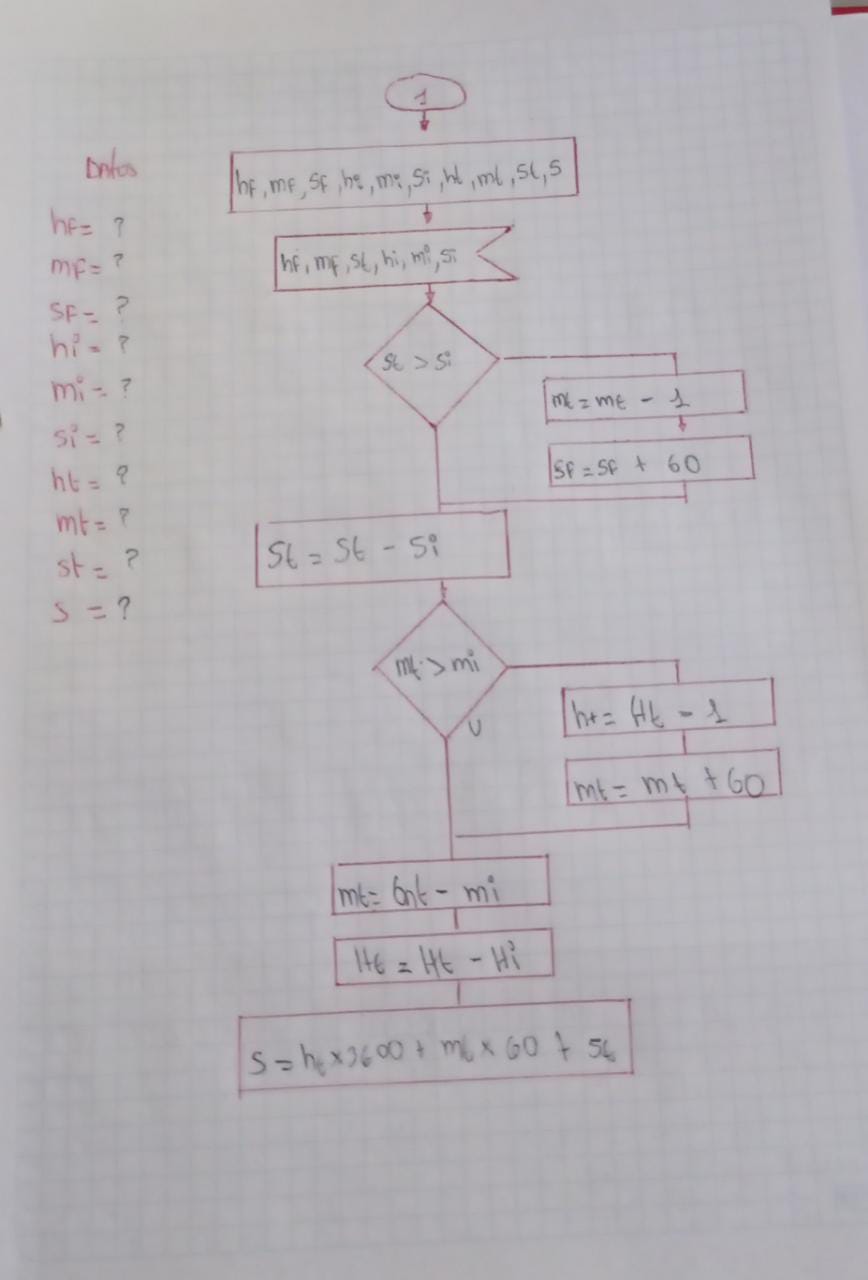 1
Datos
hf, mf, sf, hi, mi, si, ht, mt, st, s
hf = ?
mf = ?
sf = ?
hi = ?
mi = ?
si = ?
ht = ?
mt = ?
st = ?
s = ?
hf, mf, st, hi, mi, si
st > si
mt = mt - 1
sf = sf + 60
St = St - Si
mt > mi
V
ht = Ht - 1
mt = mt + 60
mt = mt - mi
Ht = Ht - Hi
S = ht x 3600 + mt x 60 + st